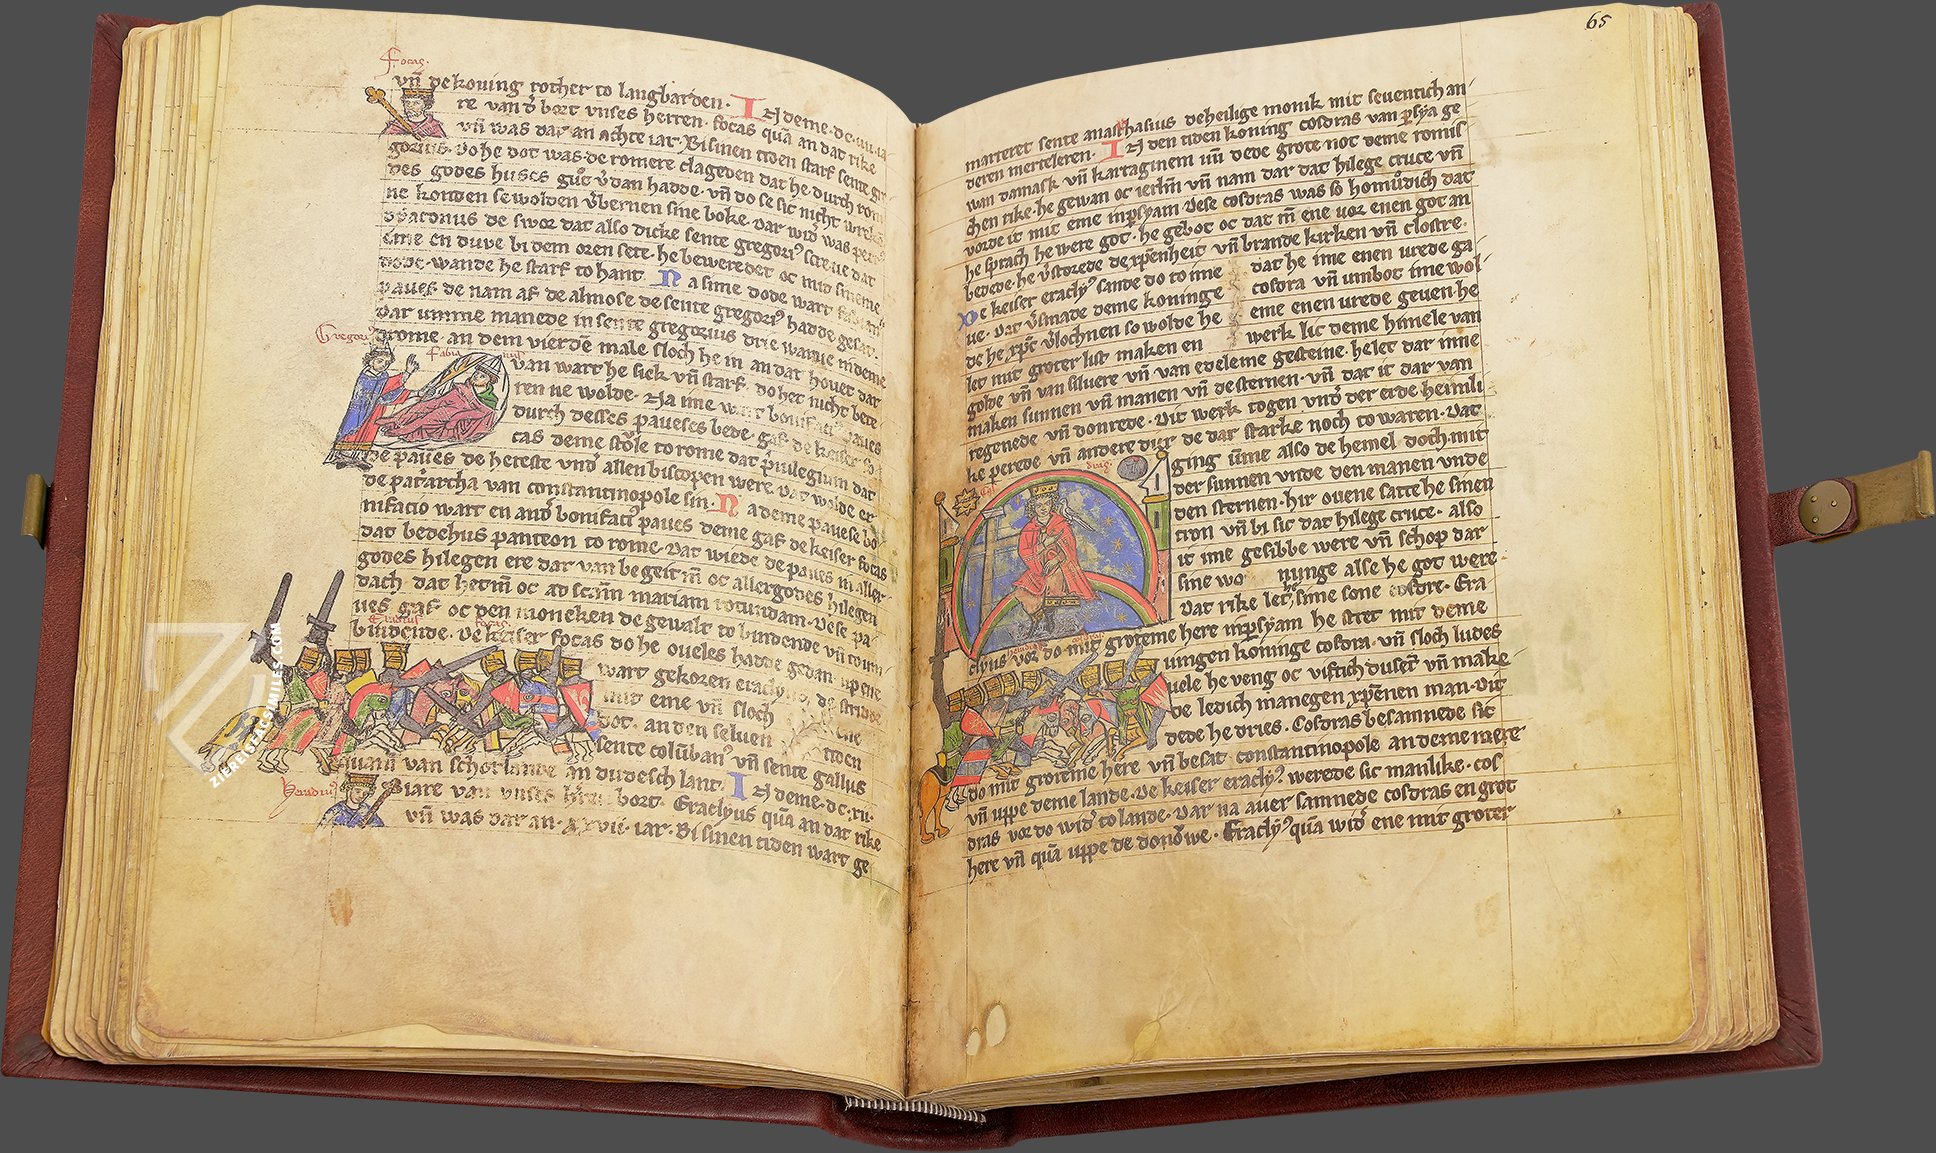 Focas.
vn̄ de koning rother to langbarden. IN deme .dc.iiii. ia
re van d̓ bort vnses herren. focas quā an dat rike
vn̄ was dar an achte iar. Bi sinen tiden starf sente gre
gorius. Do he dot was. de romere clageden dat he durch rom
des godes huses gůt v̓dan hadde. vn̄ do se sic nicht wreken
ne konden se wolden v̓bernen sine boke. Dar wid̓ was petr᾿
dyaconus de swor dat also dicke sente gregori᾿ screue dat
eme en duue bi dem oren sete. he bewerede oc mid sineme
dode. wande he starf to hant. Na sime dode wart
paues de nam af de almose de sente gregori᾿ hadde gesat.
dar umme manede in sente gregorius drie warue in deme
drome. an dem vierdē male sloch he in an dat houet dar
Gregori᾿
Fabia nus
van wart he siek vn̄ starf. do het nicht bete
ren ne wolde. Na ime wart bonifaci᾿ paues
durch desses paueses bede. gaf de keiser fo
cas deme stole to rome dat p̓uilegium dat
de paues de hereste vnd̓ allen biscopen were. dat wolde er
de pat̓archa van constantinopole sin. Na deme pauese bo
nifacio wart en and̓ bonifaci᾿ paues deme gaf de keiser focas
dat bedehus panteon to rome. Dat wiede de paues in aller
godes hilegen ere dar van begeit m̄ oc allergodes hilegen
dach. dat hetm̄ oc ad scām mariam rotundam. Dese pa
ues gaf oc den moneken de gewalt to bindende vn̄ to un
Eraclius Focas.
bindende. De keiser focas do he oueles hadde gedan. up ene
wart gekoren eracly᾿ de stridde
mit eme vn̄ sloch ene
dot. an den seluen tiden
sente colūban᾿ vn̄ sente gallus
quam van schotlande an dudesch lant. IN deme .dc.xii.
Heraclius
iare van vnses h̓ren bort. Eraclyus quā an dat rike
vn̄ was dar an .xxvii. iar. Bi sinen tiden wart ge
65
marteret sente anasthasius de heilige monik mit seuentich an
deren merteleren. IN den tiden koning cosdras van p̱sya ge
wan damask vn̄ kartaginem vn̄ dede grote not deme romis
chen rike. he gewan oc ierl̄m vn̄ nam dar dat hilege cruce vn̄
vorde it mit eme in p̱syam. Dese cosdras was so homůdich dat
he sprach he were got. he gebot oc dat m̄ ene vor enen got an
bedede. he v̓storede de xp̄enheit vn̄ brande kirken vn̄ clostre.
De keiser eracly᾿ sande do to ime dat he ime enen urede ga
ue. Dat v̓smade deme koninge cosdra vn̄ umbot ime wol
de he xp̄e v̓lochnen so wolde he eme enen urede geuen. he
let mit groter list maken en werk lic deme himele van
golde vn̄ van siluere vn̄ van edeleme gesteine. he let dar inne
maken sunnen vn̄ manen vn̄ de sternen. vn̄ dat it dar van
regenede vn̄ donrede. Dit werk togen vnd̓ der erde heimli
ke perede vn̄ andere dier de dar starke noch to waren. Dat
ging ūme also de hemel doch. mit
der sunnen vnde den manen vnde
den sternen. hir ouene satte he sinen
tron vn̄ bi sic dat hilege cruce. also
it ime gesibbe were vn̄ schop dar
sine wo nunge alse he got were.
Dat rike let he sime sone cosdre. Era
clyus vor do mit groteme here in p̱syam he stret mit deme
iungen koninge cosdra. vn̄ sloch ludes
uele he veng oc viftich dusent vn̄ make
de ledich manegen xp̄enen man. Dit
dede he dries. Cosdras besamnede sic
do mit groteme here vn̄ besat constantinopole an deme mere
vn̄ uppe deme lande. De keiser eracly᾿ werede sic manlike. cos
dras vor do wid̓ to lande. Dar na auer samnede cosdras en grot
here vn̄ quā uppe de donowe. Eracly᾿ quā wid̓ ene mit groter
ZIEREIS FACSIMILES.COM